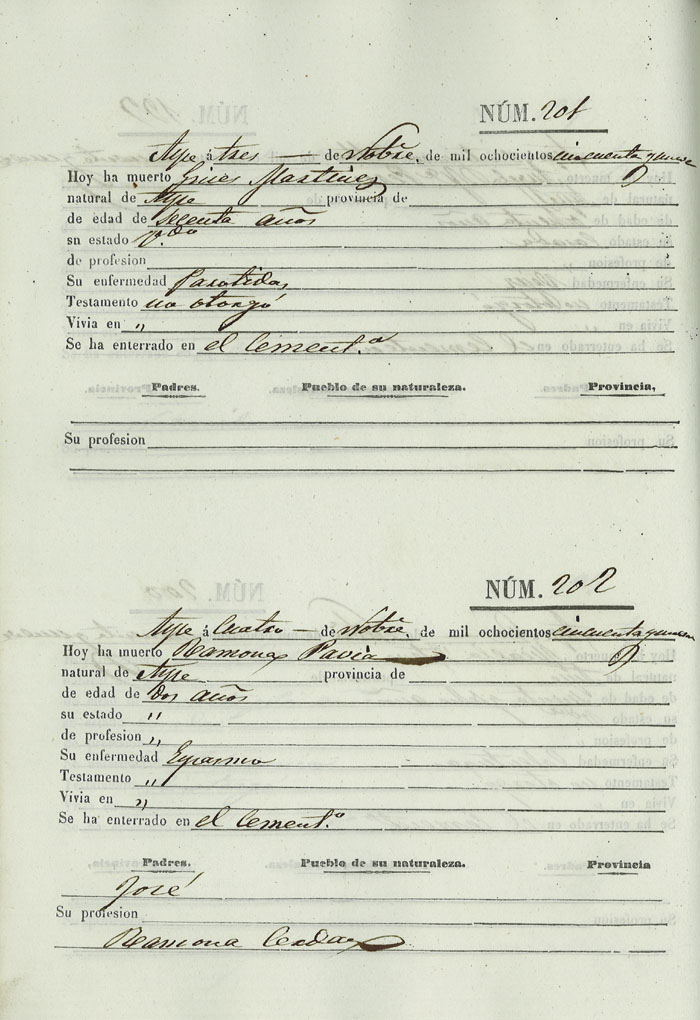 NÚM. 201
Aspe á tres — de Nobre. de mil ochocientos cincuenta y nueve
Hoy ha muerto Martinez
natural de Aspe provincia de
de edad de secenta años
sn estado V.do
de profesion
Su enfermedad Parotidas
Testamento no otorgó
Vivia en „
Se ha enterrado en el Cement.o
Padres. Pueblo de su naturaleza. Provincia,
Su profesion
NÚM. 202
Aspe á Cuatro — de Nobre. de mil ochocientos cincuenta y nueve
Hoy ha muerto Ramona Pavia
natural de Aspe provincia de
de edad de dos años
su estado „
de profesion „
Su enfermedad Espasmo
Testamento „
Vivia en „
Se ha enterrado en el Cement.o
Padres. Pueblo de su naturaleza. Provincia
José
Su profesion
Ramona Cerdan